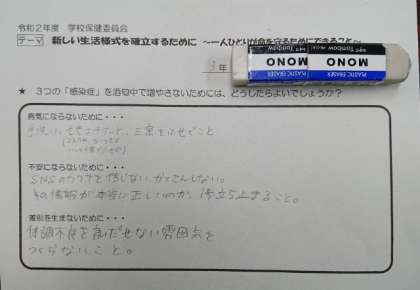 令和2年度 学校保健委員会
テーマ 新しい生活様式を確立するために ～一人ひとりが命を守るためにできること～
3年
PLASTIC ERASER
MONO
Tombow
PLASTIC ERASER
MONO
Tombow
★ 3つの「感染症」を沼中で増やさないためには、どうしたらよいでしょうか?
病気にならないために・・・
手洗い、三密をさけること
不安にならないために・・・
SNSのウワサを信じない、かくさんしない。
その情報が本当に正しいのか、1度立ち止まること。
差別を生まないために・・・
体調不良を言いだせない雰囲気を
つくらないこと。